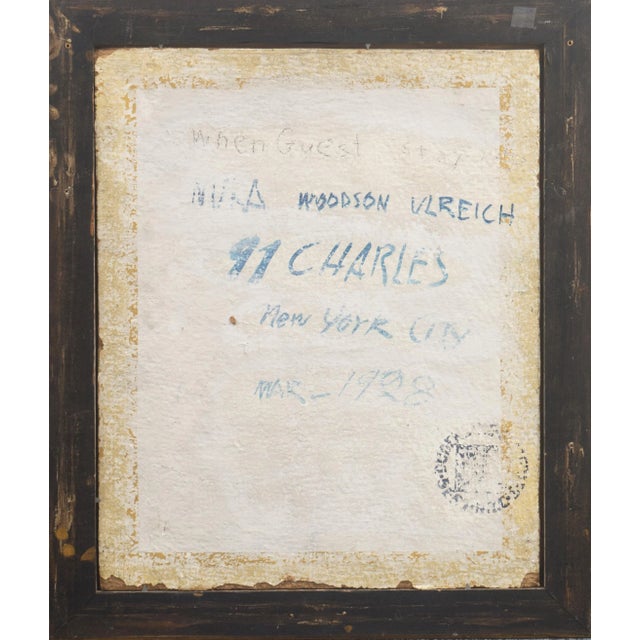 When Guest Stay
NURA WOODSON ULREICH
91 CHARLES
New York City
MAR - 1928